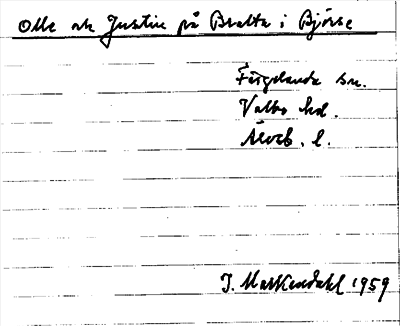 Olle och Justine på Bratta i Björke
Färgelanda sn.
Valbo hd.
Älvsb. l.
J. Markendahl 1959